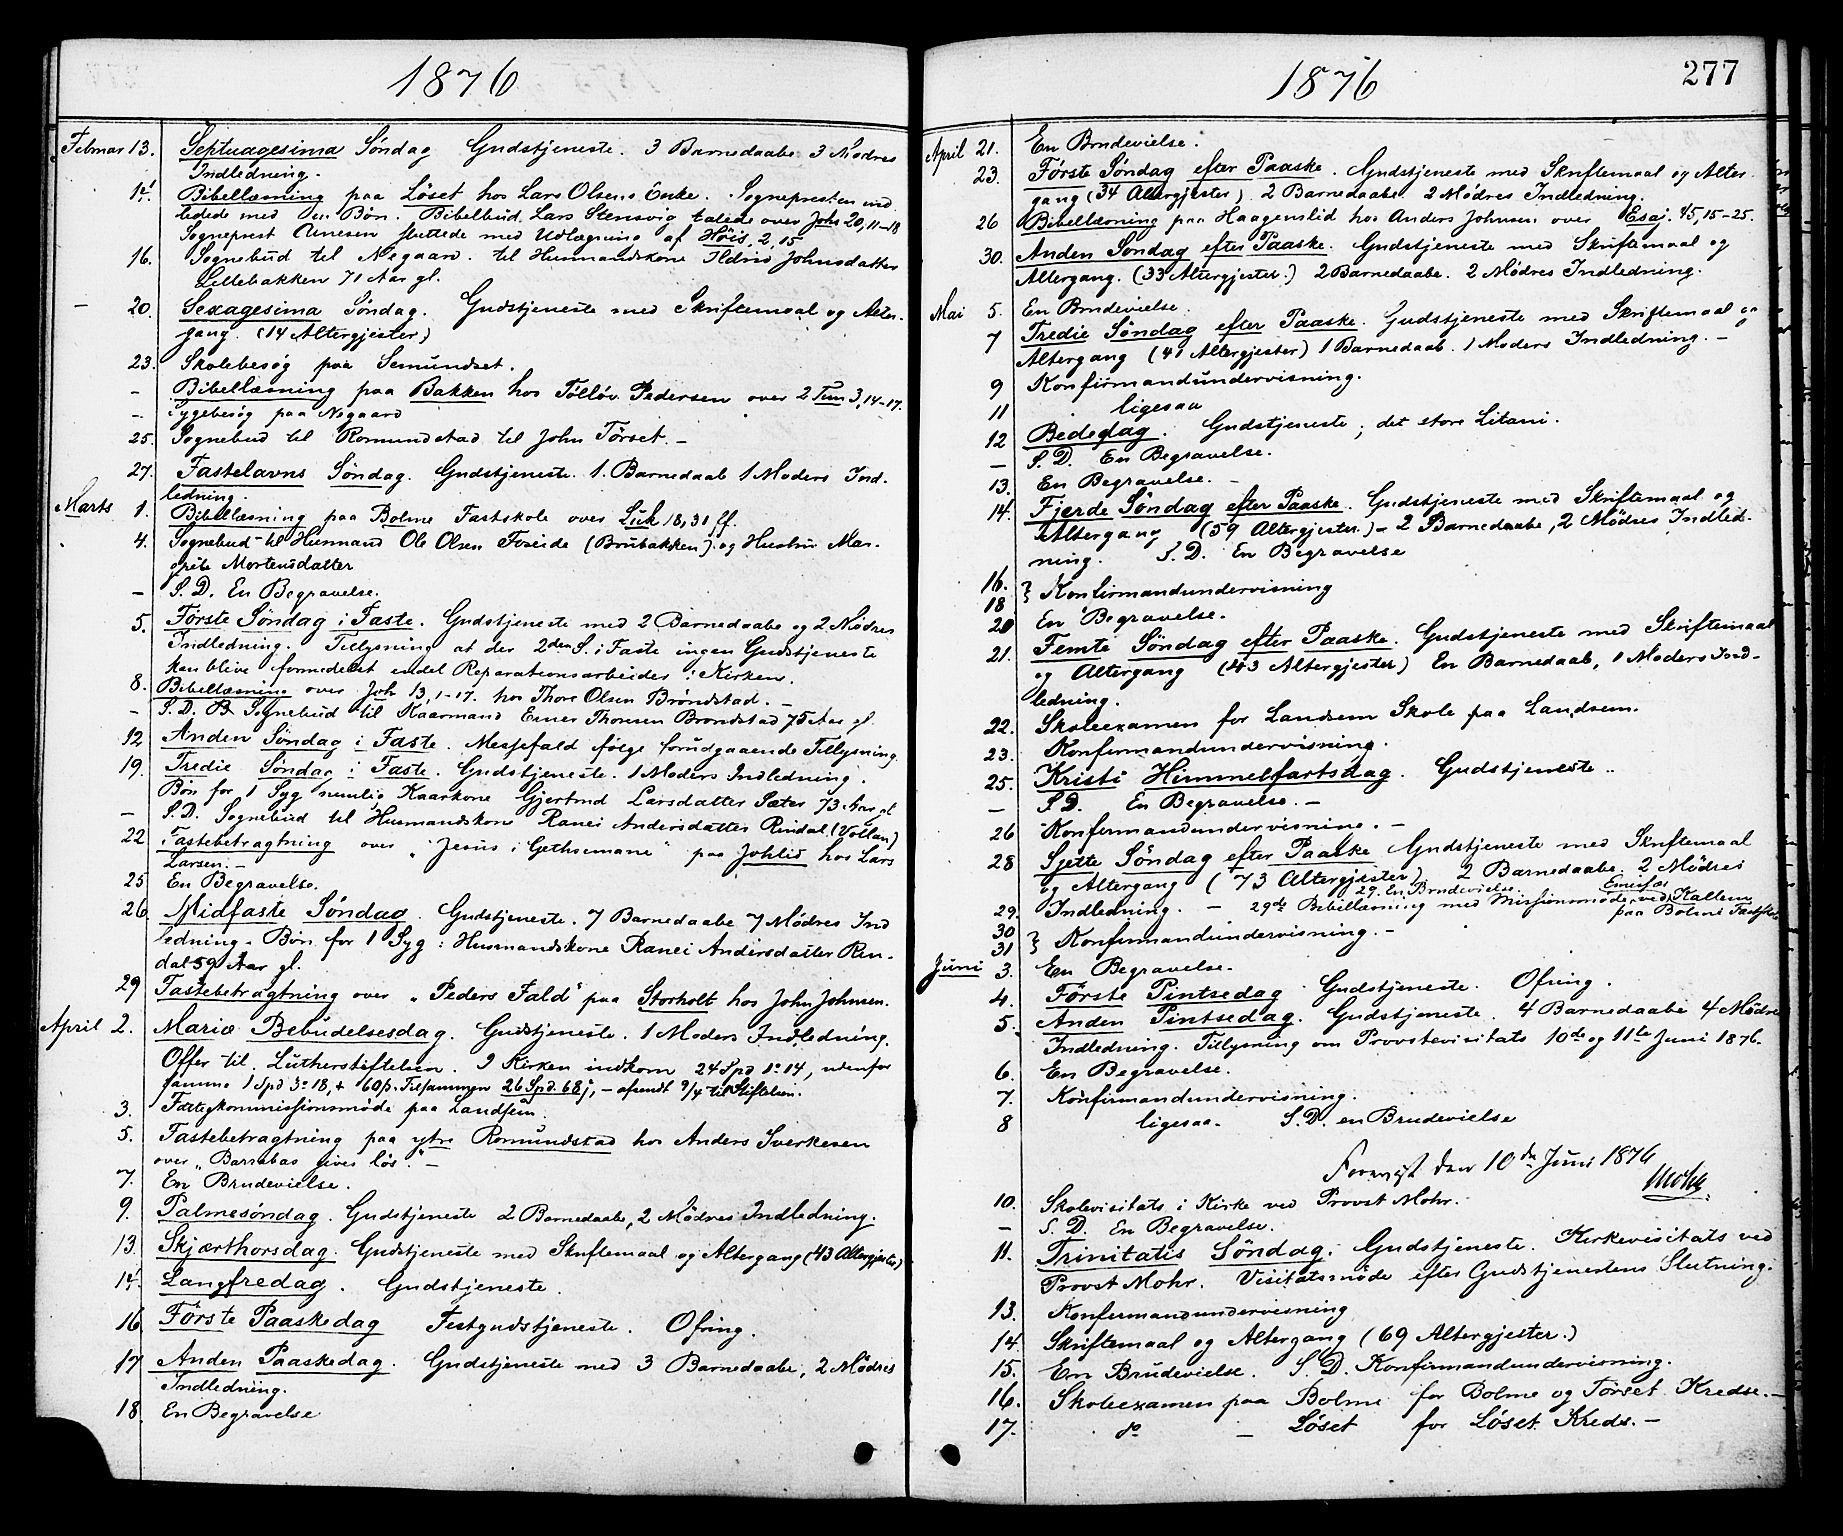 1876
Februar 13. Septuagesima Søndag Gudstjeneste. 3 Barnedaabe 3 Mødres
Indledning.
14. Bibellæsning paa Løset hos Lars Olsens Enke. Sognepresten ind
ledede med Bøn. Bibelbud Lars Stensvig talede over Joh 20, 11-18
Sogneprest sluttede med Udlægning af Høis. 2, 15
16. Sognebud til Negaard. til Husmandskone Ildrid Johnsdatter
Lillebakken 71 Aar gl.
— 20. Sexagesima Søndag. Gudstjeneste med Skriftemaal og Alter-
gang. (14 Altergjester)
23. Skolebesøg paa Semundset.
- Bibellæsning paa Bakken hos Tølløv Pedersen over 2 Tim 3, 14-17.
- Sygebesøg paa Negaard
25. Sognebud til Romundstad til John Tørset. -
27. Fastelavns Søndag. Gudstjeneste. 1. Barnedaab 1 Moders Ind-
ledning.
Marts 1. Bibellæsning paa Bolme Fastskole over Luk 18, 31 ff.
4. Sognebud til Husmand Ole Olsen Foseide (Brubakken) og Hustru Mar-
grete Mortensdatter
- S. D. En Begravelse.
5. Første Søndag i Faste. Gudstjeneste med 2 Barnedaabe og 2 Mødres
Indledning. Tillysning at der 2den S. i Faste ingen Gudstjeneste
kan blive formedelst endel Reparationsarbeider i Kirken.
8. Bibellæsning over Joh 13, 1-17. hos Thore Olsen Brøndstad. -
- S. D. Sognebud til Kaarmand Thorsen Brøndstad 75 Aar gl.
12 Anden Søndag i Faste. Messefald følge forudgaaende Tillysning
19. Tredie Søndag i Faste. Gudstjeneste. 1 Moders Indledning.
Bøn for 1 Syg nemlig Kaarkone Gjertrud Larsdatter Sæter 73 Aar gl
- S. D. Sognebud til Husmandskone Ranei Andersdatter Rindal (Vollan)
22 Fastebetragtning over "Jesus i Gethsemane" paa Johlid hos Lars
Larsen. -
25 En Begravelse.
26. Midfaste Søndag. Gudstjeneste. 7 Barnedaabe 7 Mødres Ind
ledning. Bøn for 1 Syg: Husmandskone Ranei Andersdatter Rin-
dal 59 Aar gl.
29 Fastebetragtning over "Peders Fald" paa Storholt hos John Johnsen.
April 2. Mariæ Bebudelsesdag. Gudstjeneste. 1 Moders Indledning.
Offer til Lutherstiftelsen. I Kirken indkom 24 Spd 1 14, udenfor
samme 1 Spd 3 18, + 60 Tilsammen 26 Spd. 68, - afsendt 9/4 til Stiftelsen.
3. Fattigkommissionsmøde paa Landsem.
5. Fastebetragtning paa ytre Romundstad hos Anders Sverkesen
over "Barrabas gives løs". -
7. En Brudevielse.
9. Palmesøndag. Gudstjeneste 2 Barnedaabe, 2 Mødres Indledning.
13. Skjærthorsdag. Gudstjeneste med Skriftemaal og Altergang (43 Altergjester)
14. Langfredag. Gudstjeneste.
16. Første Paaskedag Festgudstjeneste. Ofring.
17 Anden Paaskedag. Gudstjeneste med 3 Barnedaabe, 2 Mødres
Indledning.
18. En Begravelse
1876
277
April 21. En Brudevielse.
23. Første Søndag efter Paaske. Gudstjeneste med Skriftemaal og Alter-
gang (34 Altergjester) 2 Barnedaabe 2 Mødres Indledning.
26 Bibellæsning paa Haagenslid hos Anders Johnsen over Esaj. 45, 15-25.
30. Anden Søndag efter Paaske. Gudstjeneste med Skriftemaal og
Altergang. (33 Altergjester.) 2 Barnedaabe. 2 Mødres Indledning.
Mai 5. En Brudevielse.
7 Tredie Søndag efter Paaske. Gudstjeneste med Skriftemaal og
Altergang (41 Altergjester) 1 Barnedaab. 1 Moders Indledning. -
9 Konfirmandundervisning.
11 ligesaa
12 Bededag. Gudstjeneste; det store Litani.
— S. D. En Begravelse.
13. En Begravelse. -
14. Fjerde Søndag efter Paaske. Gudstjeneste med Skriftemaal og
Altergang (59 Altergjester.) - 2 Barnedaabe, 2 Mødres Indled-
ning. S. D. En Begravelse
16.
18 } Konfirmandundervisning
20 En Begravelse.
21. Femte Søndag efter Paaske. Gudstjeneste med Skriftemaal
og Altergang (43 Altergjester) En Barnedaab, 1 Moders Ind-
ledning.
22. Skoleexamen for Landsem Skole paa Landsem.
23. Konfirmandundervisning.
25. Kristi Himmelfartsdag. Gudstjeneste.
— S. D. En Begravelse. -
26 Konfirmandundervisning. -
28 Sjette Søndag efter Paaske Gudstjeneste med Skriftemaal
og Altergang (73 Altergjester). 2 Barnedaabe. 2 Mødres
29. En Brudevielse.
29. Indledning. - 29de Bibellæsning med Missionsmøde ved Emissær Kallem
paa Bolme Fastskole
30
31 } Konfirmandundervisning. -
Juni 3. En Begravelse.
4. Første Pintsedag. Gudstjeneste. Ofring.
5. Anden Pintsedag. Gudstjeneste. 4 Barnedaabe 4 Mødres
Indledning. Tillysning om Provstevisitats 10de og 11te Juni 1876.
6. En Begravelse.
7. Konfirmandundervisning.
8 ligesaa. S. D. en Brudevielse
Forevist den 10de Juni 1876
Mohr.
10. Skolevisitats i Kirke ved Provst Mohr.
— S. D. En Begravelse.
11. Trinitatis Søndag. Gudstjeneste. Kirkevisitats ved
Provst Mohr. Visitatsmøde efter Gudstjenestens Slutning.
13. Konfirmandundervisning
14. Skriftemaal og Altergang (69 Altergjester.)
15. En Brudevielse. S. D. Konfirmandundervisning.
16. Skoleexamen paa Bolme for Bolme og Tørset Kredse. -
17. do — Løset for Løset Kreds. -